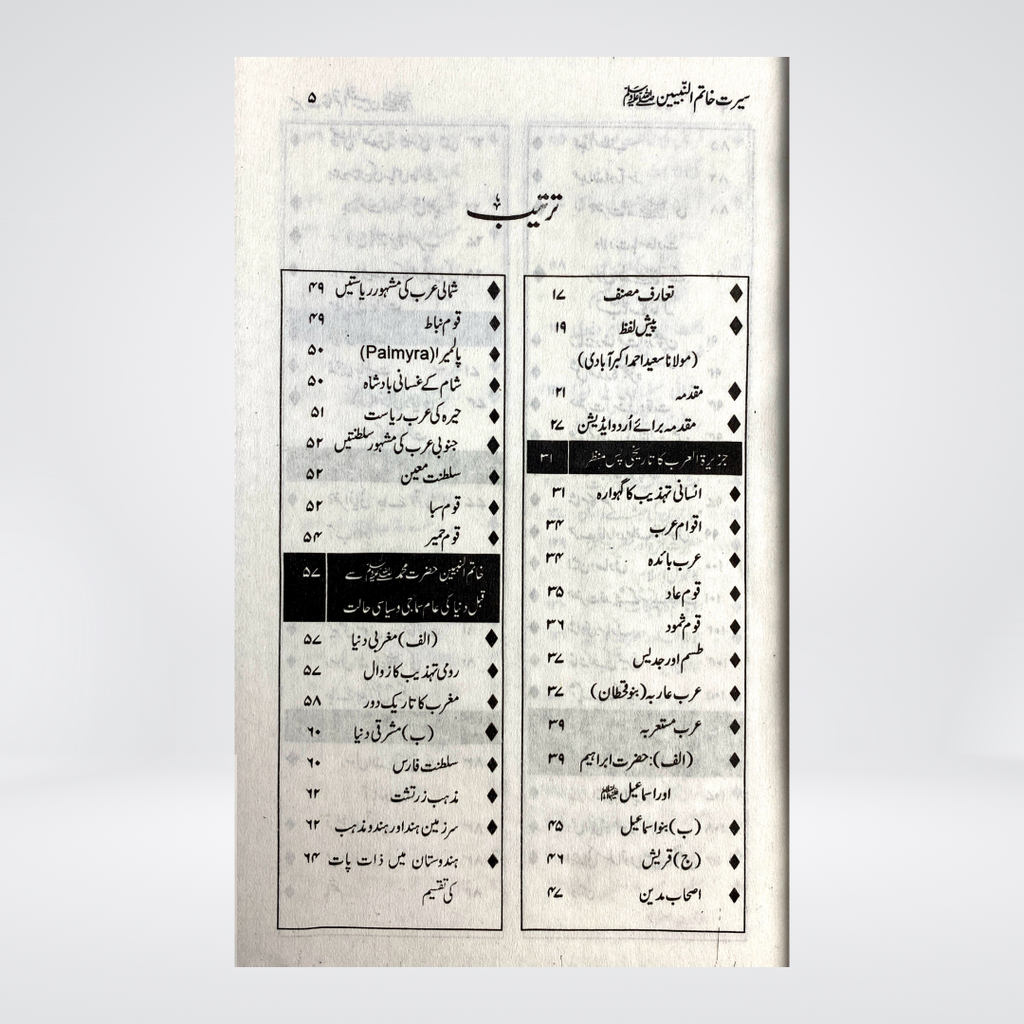 سیرت خاتم النّبیین ﷺ ۵
ترتیب
تعارف مصنف ۱۷
پیش لفظ ۱۹
(مولانا سعید احمد اکبر آبادی)
مقدمہ ۲۱
مقدمہ برائے اُردو ایڈیشن ۲۷
جزیرۃ العرب کا تاریخی پس منظر ۳۱
انسانی تہذیب کا گہوارہ ۳۱
اقوام عرب ۳۴
عرب بائدہ ۳۴
قوم عاد ۳۵
قوم ثمود ۳۶
طسم اور جدیس ۳۷
عرب عاربہ (بنو قحطان) ۳۷
عرب مستعربہ ۳۹
(الف): حضرت ابراہیم ۳۹
اور اسماعیل
(ب) بنو اسماعیل ۴۵
(ج) قریش ۴۶
اصحاب مدین ۴۷
شمالی عرب کی مشہور ریاستیں ۴۹
قوم نباط ۴۹
پالمیرا (Palmyra) ۵۰
شام کے غسانی بادشاہ ۵۰
حیرہ کی عرب ریاست ۵۱
جنوبی عرب کی مشہور سلطنتیں ۵۲
سلطنت معین ۵۲
قوم سبا ۵۲
قوم حمیر ۵۴
خاتم النبیین حضرت محمد ﷺ سے ۵۷
قبل دنیا کی عام سماجی و سیاسی حالت
(الف) مغربی دنیا ۵۷
رومی تہذیب کا زوال ۵۷
مغرب کا تاریک دور ۵۸
(ب) مشرقی دنیا ۶۰
سلطنت فارس ۶۰
مذہب زرتشت ۶۲
سرزمین ہند اور ہندو مذہب ۶۲
ہندوستان میں ذات پات ۶۴
کی تقسیم